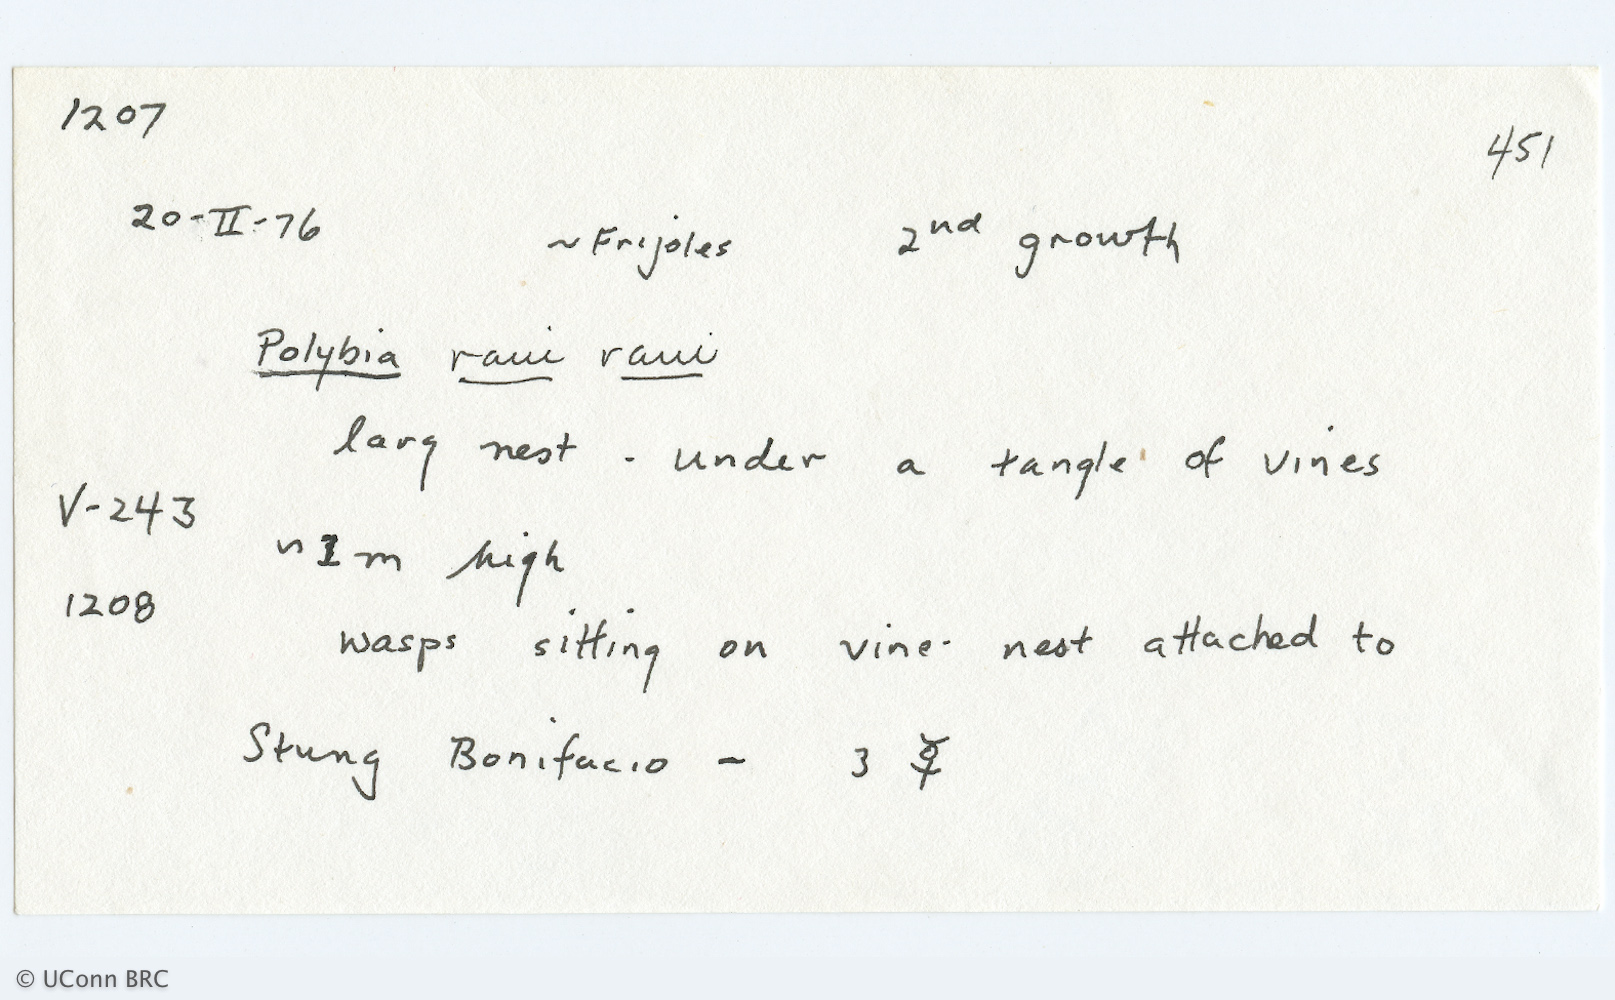 1207
451
20-II-76 ~Frijoles 2nd growth
Polybia raui raui
larg nest - under a tangle of vines
V-243
~1 m high
1208
wasps sitting on vine - nest attached to
Stung Bonifacio - 3 ☿
© UConn BRC